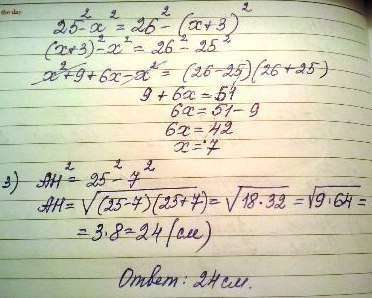 25² - x² = 26² - (x+3)²
(x+3)² - x² = 26² - 25²
x² + 9 + 6x - x² = (26-25)(26+25)
9 + 6x = 51
6x = 51 - 9
6x = 42
x = 7
3) AH² = 25² - 7²
AH = √(25-7)(25+7) = √18·32 = √9·64 =
= 3·8 = 24 (см)
Ответ: 24см.